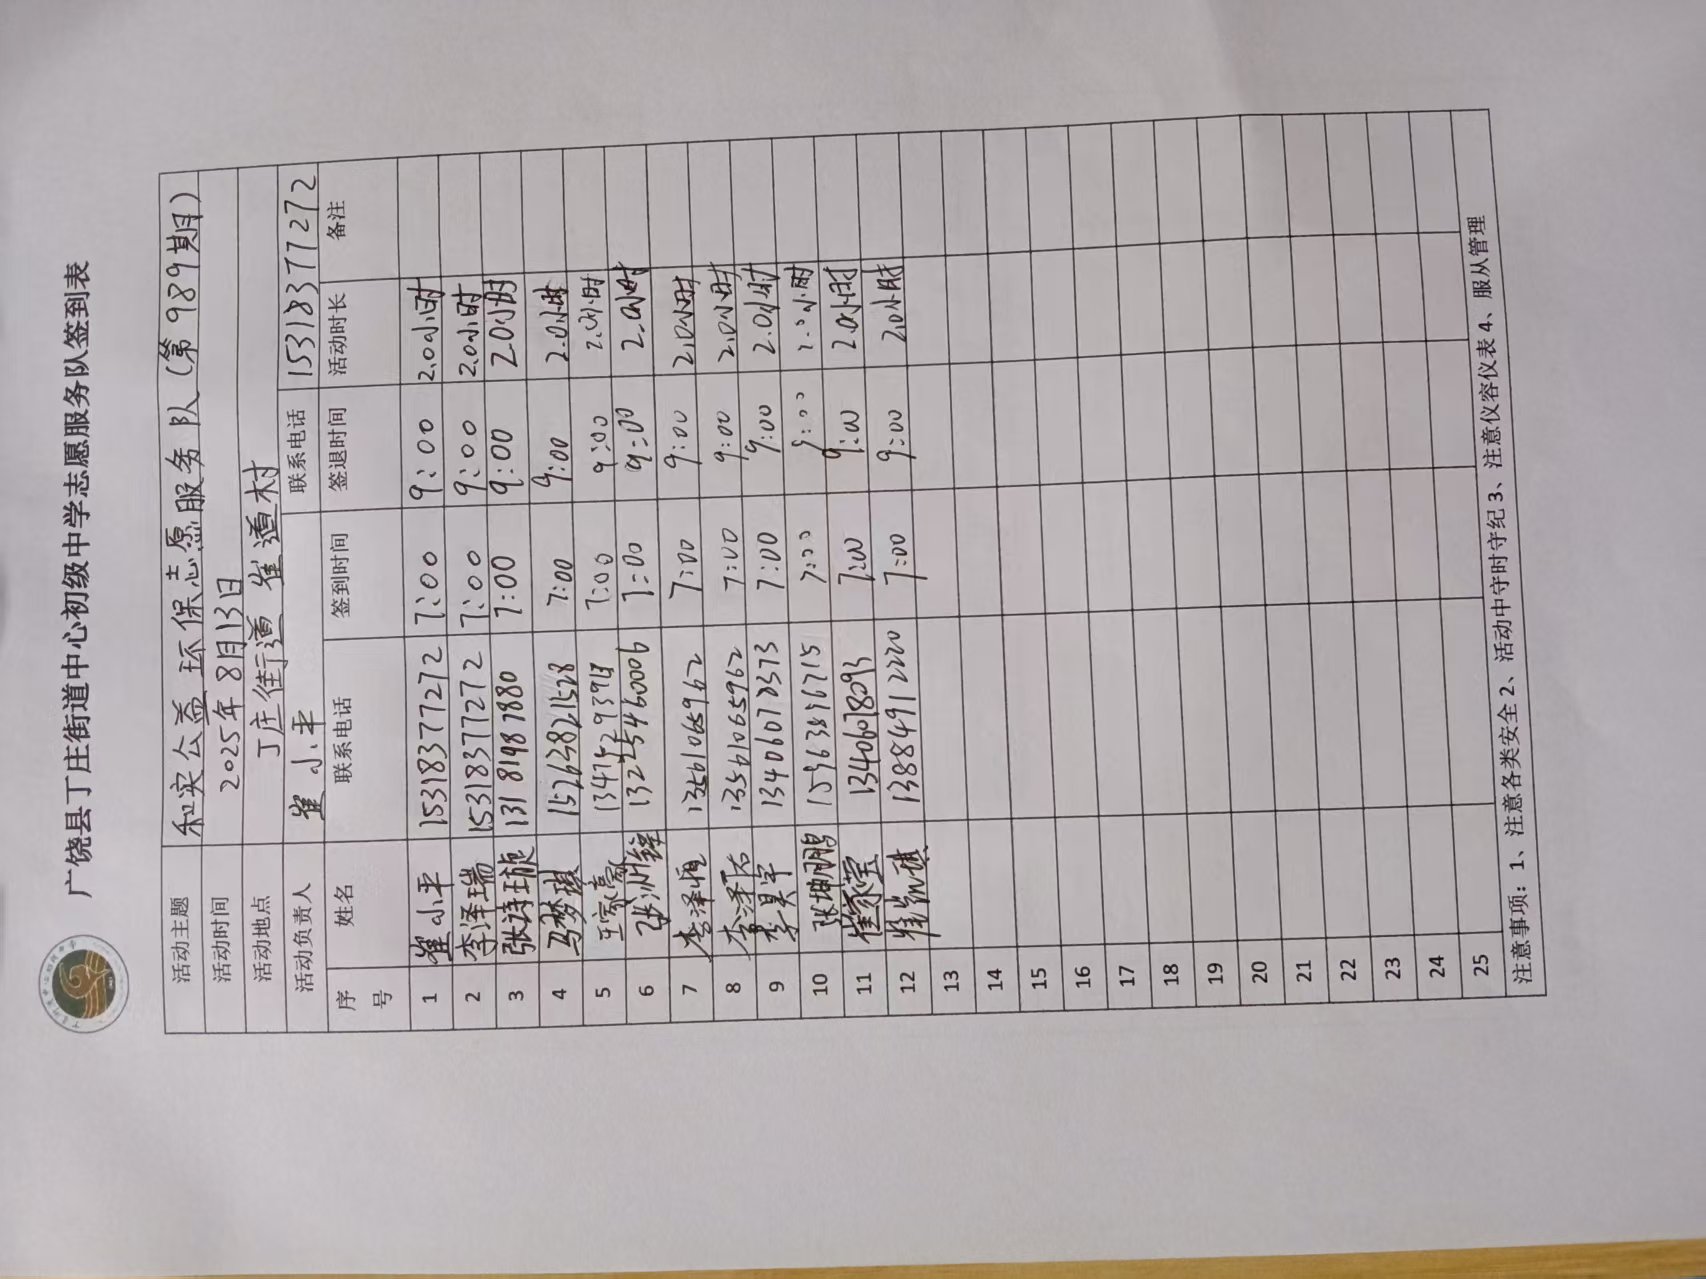 广饶县丁庄街道中心初级中学志愿服务队签到表
活动主题 和实公益环保志愿服务队(第989期)
活动时间 2025年8月13日
活动地点 丁庄街道崔道村
活动负责人 崔小平 联系电话 15318377272
序号 姓名 联系电话 签到时间 签退时间 活动时长 备注
1 崔小平 15318377272 7:00 9:00 2.0小时
2 李泽瑞 15318377272 7:00 9:00 2.0小时
3 张诗璇 13181987880 7:00 9:00 2.0小时
4 马梦琪 15263821528 7:00 9:00 2.0小时
5 7:00 9:00 2.0小时
6 13254546006 7:00 9:00 2.0小时
7 李泽恒 13561065962 7:00 9:00 2.0小时
8 李泽佑 13561065962 7:00 9:00 2.0小时
9 李昊宇 7:00 9:00 2.0小时
10 张坤鹏 7:00 9:00 2.0小时
11 13406018093 7:00 9:00 2.0小时
12 13884912220 7:00 9:00 2.0小时
13
14
15
16
17
18
19
20
21
22
23
24
25
注意事项:1、注意各类安全2、活动中守时守纪3、注意仪容仪表4、服从管理